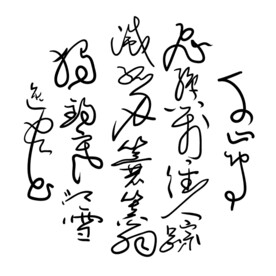 千山鳥飛
絕万徑人踪
滅孤舟蓑笠翁
獨釣寒江雪
書